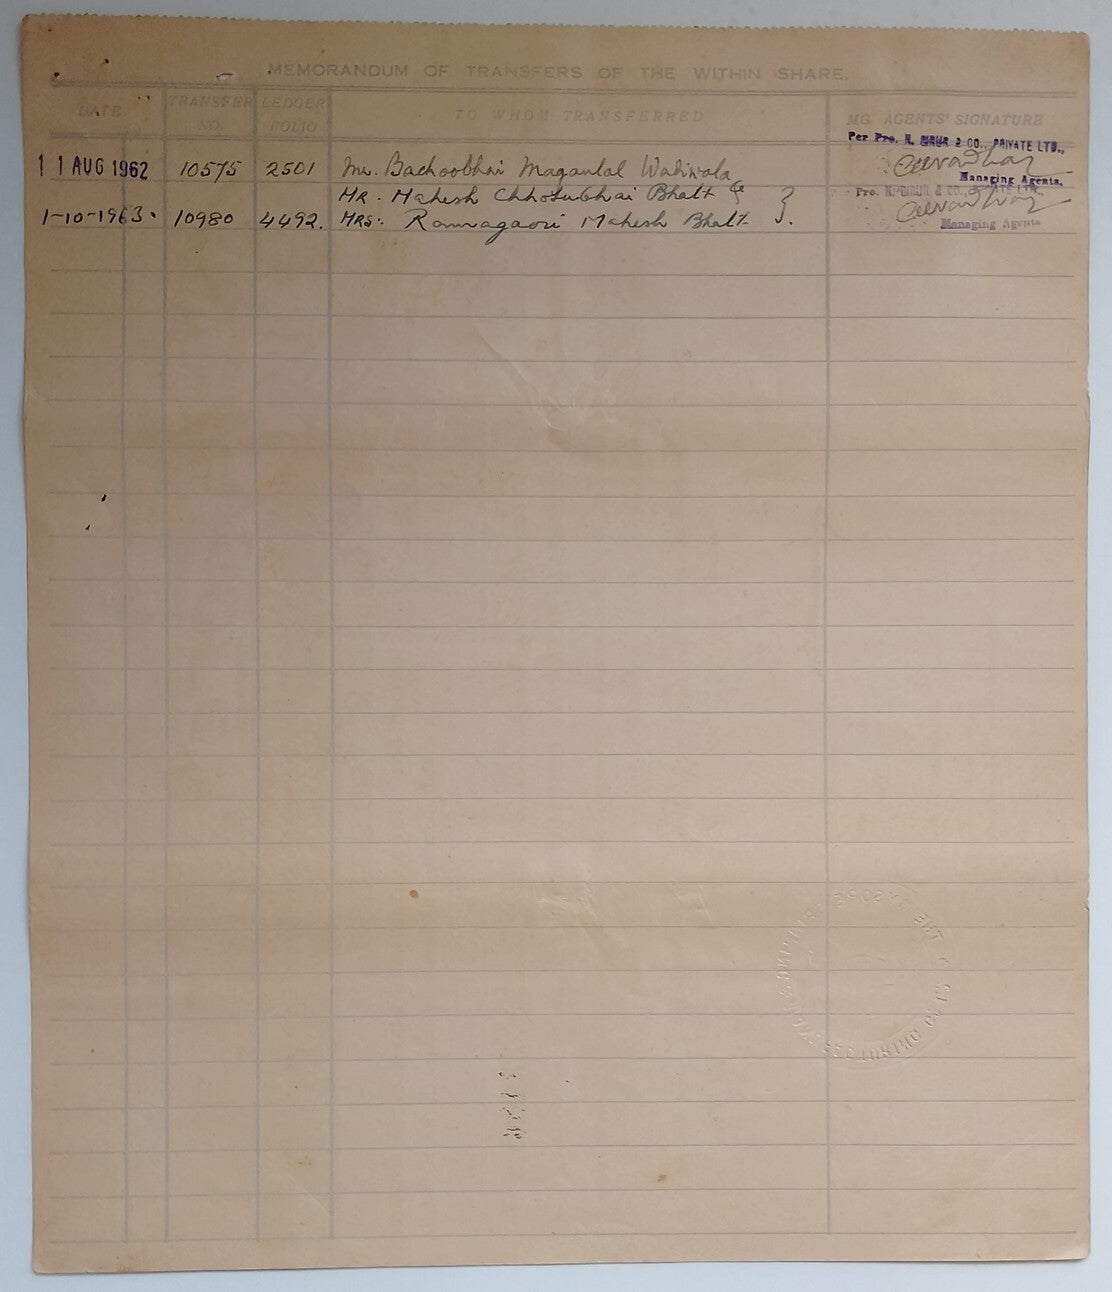 MEMORANDUM OF TRANSFERS OF THE WITHIN SHARE.
DATE TRANSFER NO. LEDGER FOLIO TO WHOM TRANSFERRED MG. AGENTS' SIGNATURE
Per Pro. N. SIRUR & CO., PRIVATE LTD.,
11 AUG 1962 10575 2501 Mr. Bachoobhai Maganlal Wadiwala
Managing Agents.
MR. Mahesh Chhotubhai Bhatt &
Pro. N. SIRUR & CO., PRIVATE LTD.
1-10-1963. 10980 4492. MRS: Ramagauri Mahesh Bhatt }.
Managing Agents